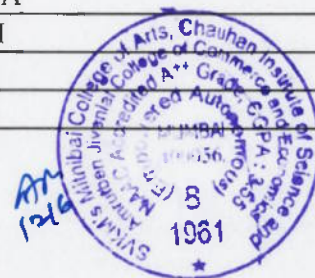 SVKM's Mithibai College of Arts, Chauhan Institute of Science and
Amrutben Jivanlal College of Commerce and Economics
NAAC Accredited A++ Grade, CGPA: 3.55
(Empowered Autonomous)
MUMBAI
S
1961